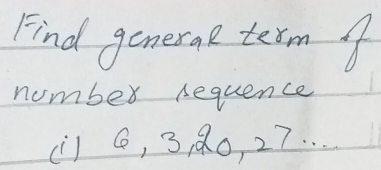 Find general term of
number sequence
(i) 6, 3, 20, 27....